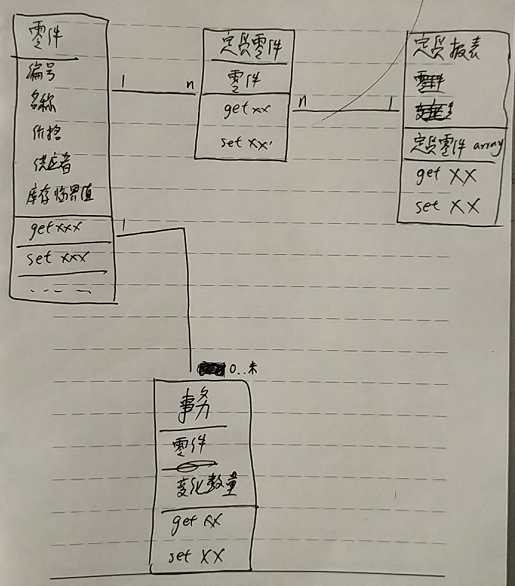 零件
编号
名称
价格
供应者
库存临界值
get xxx
set xxx
1
n
定货零件
零件
get xx
set xx
n
1
定货报表
定货零件 array
get XX
set XX
1
0..*
事务
零件
变化数量
get xx
set XX